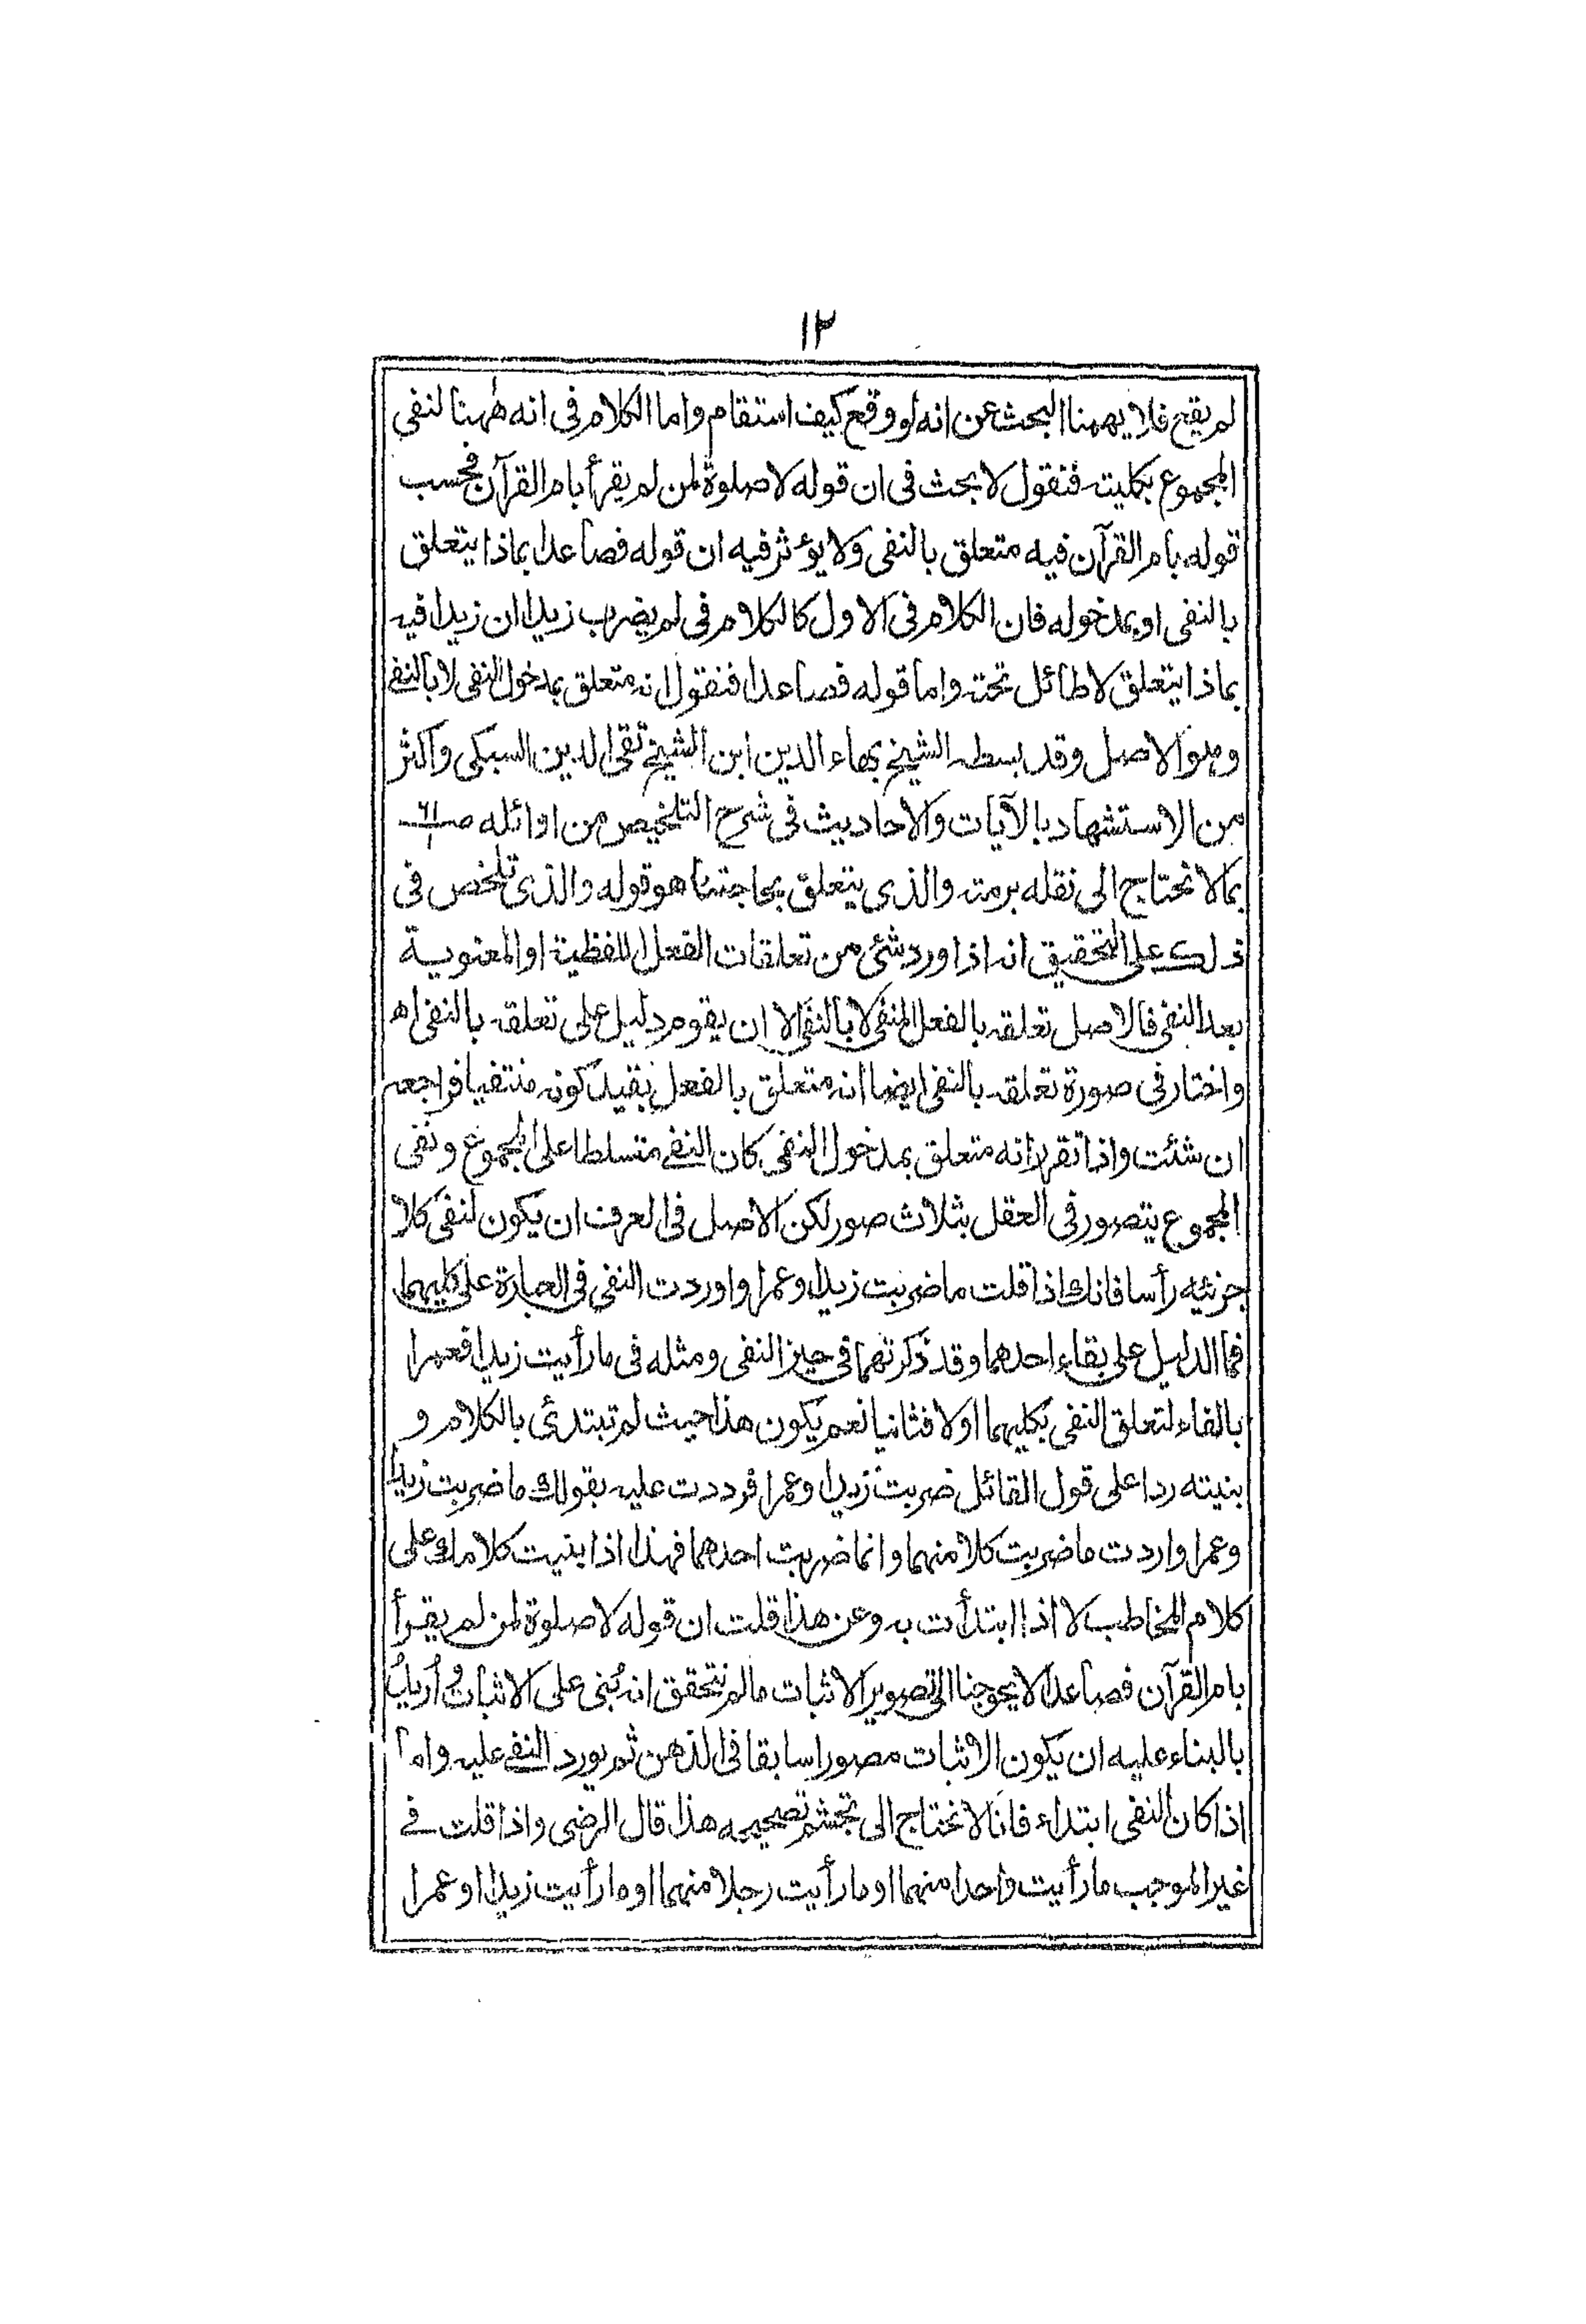 ١٢
لم يقع فلا يهمنا البحث عن انه لو وقع كيف استقام واما الكلام فى انه ههنا لنفى
المجموع بكليته فنقول لا بحث فى ان قوله لا صلوة لمن لم يقرأ بام القرآن فحسب
قوله بام القرآن فيه متعلق بالنفى ولا يؤثر فيه ان قوله فصاعدا بماذا يتعلق
بالنفى او بمدخوله فان الكلام فى الاول كالكلام فى لم يضرب زيدا ان زيدا فيه
بماذا يتعلق لا طائل تحته واما قوله فصاعدا فنقول انه متعلق بمدخول النفى لا بالنفى
وهو الاصل وقد بسطه الشيخ بهاء الدين ابن الشيخ تقى الدين السبكى واكثر
من الاستشهاد بالآيات والاحاديث فى شرح التلخيص من اوائله صـ
بما لا نحتاج الى نقله برمته والذى يتعلق بحاجتنا هو قوله والذى تلخص فى
ذلك على التحقيق انه اذا ورد شئ من تعلقات الفعل اللفظية او المعنوية
بعد النفى فالاصل تعلقه بالفعل المنفى لا بالنفى الا ان يقوم دليل على تعلقه بالنفى اه
واختار فى صورة تعلقه بالنفى ايضا انه متعلق بالفعل بقيد كونه منتفيا فراجعه
ان شئت واذا تقرر انه متعلق بمدخول النفى كان النفى متسلطا على المجموع ونفى
المجموع يتصور فى العقل بثلاث صور لكن الاصل فى العرف ان يكون لنفى كلا
جزئيه رأسا فانك اذا قلت ما ضربت زيدا وعمرا واوردت النفى فى العبارة على كليهما
فما الدليل على بقاء احدهما وقد ذكرتهما فى حيز النفى ومثله فى ما رأيت زيدا فعمرا
بالفاء لتعلق النفى بكليهما اولا فثانيا نعم يكون هذا حيث لم تبتدئ بالكلام و
بنيته ردا على قول القائل ضربت زيدا وعمرا فرددت عليه بقولك ما ضربت زيدا
وعمرا واردت ما ضربت كلا منهما وانما ضربت احدهما فهذا اذا بنيت كلامك على
كلام المخاطب لا اذا ابتدأت به وعن هذا قلت ان قوله لا صلوة لمن لم يقرأ
بام القرآن فصاعدا لا يحوجنا الى تصوير الاثبات ما لم نتحقق انه بُنى على الاثبات وأُريدُ
بالبناء عليه ان يكون الاثبات مصورا سابقا فى الذهن ثم يورد النفى عليه واما
اذا كان النفى ابتداء فانا لا نحتاج الى تجشم تصحيحه هذا قال الرضى واذا قلت فى
غير الموجب ما رأيت واحدا منهما او ما رأيت رجلا منهما او ما رأيت زيدا او عمرا